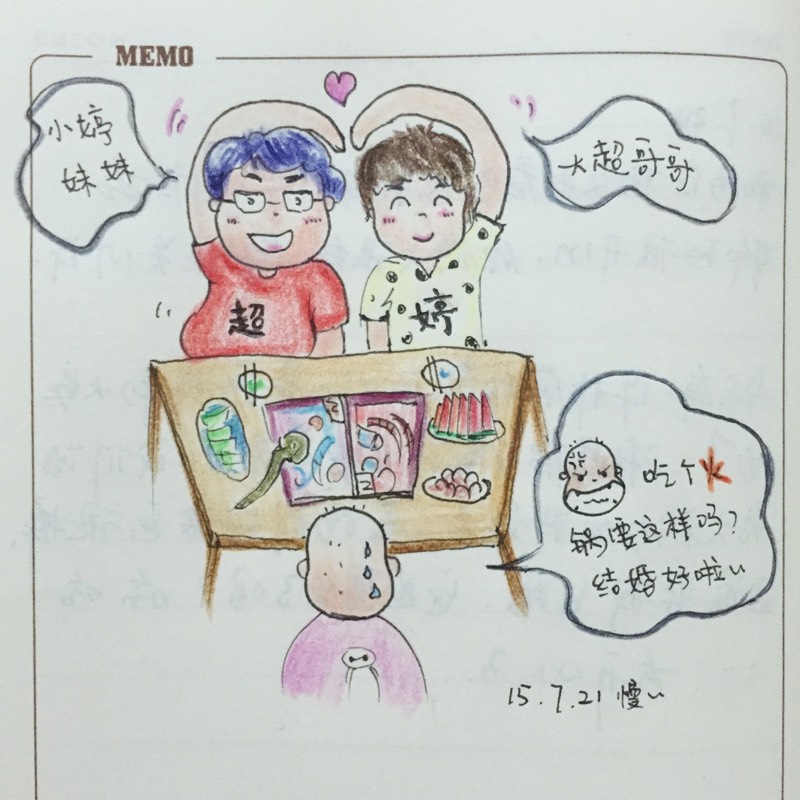 MEMO
小婷
妹妹
大超哥哥
超
婷
吃个火
锅要这样吗?
结婚好啦~
15.7.21 慢~